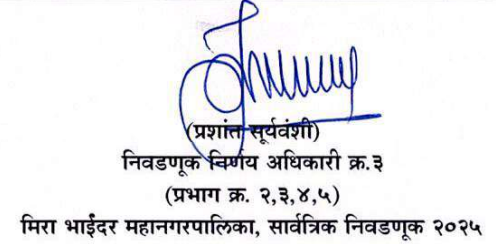 (प्रशांत सूर्यवंशी)
निवडणूक निर्णय अधिकारी क्र.३
(प्रभाग क्र. २,३,४,५)
मिरा भाईंदर महानगरपालिका, सार्वत्रिक निवडणूक २०२५